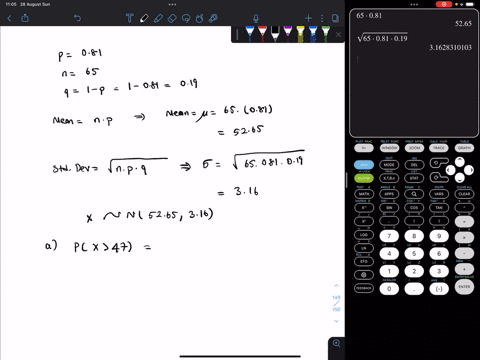 11:05 28 August Sun
p = 0.81
n = 65
q = 1-p = 1-0.81 = 0.19
Mean = n.p ⇒ Mean = μ = 65.(0.81)
= 52.65
Std. Dev = √n.p.q ⇒ σ = √65.0.81.0.19
= 3.16
x ~ N(52.65, 3.16)
a) P(X>47) =
65·0.81
52.65
√65·0.81·0.19
3.1628310103
WINDOW ZOOM TRACE GRAPH
DEL
X,T,θ,n STAT
MATH APPS PRGM VARS CLEAR
SIN COS TAN ^
x² , ( ) ÷
LOG 7 8 9 ×
LN 4 5 6 −
STO 1 2 3 +
FEEDBACK 0 . (-) ENTER